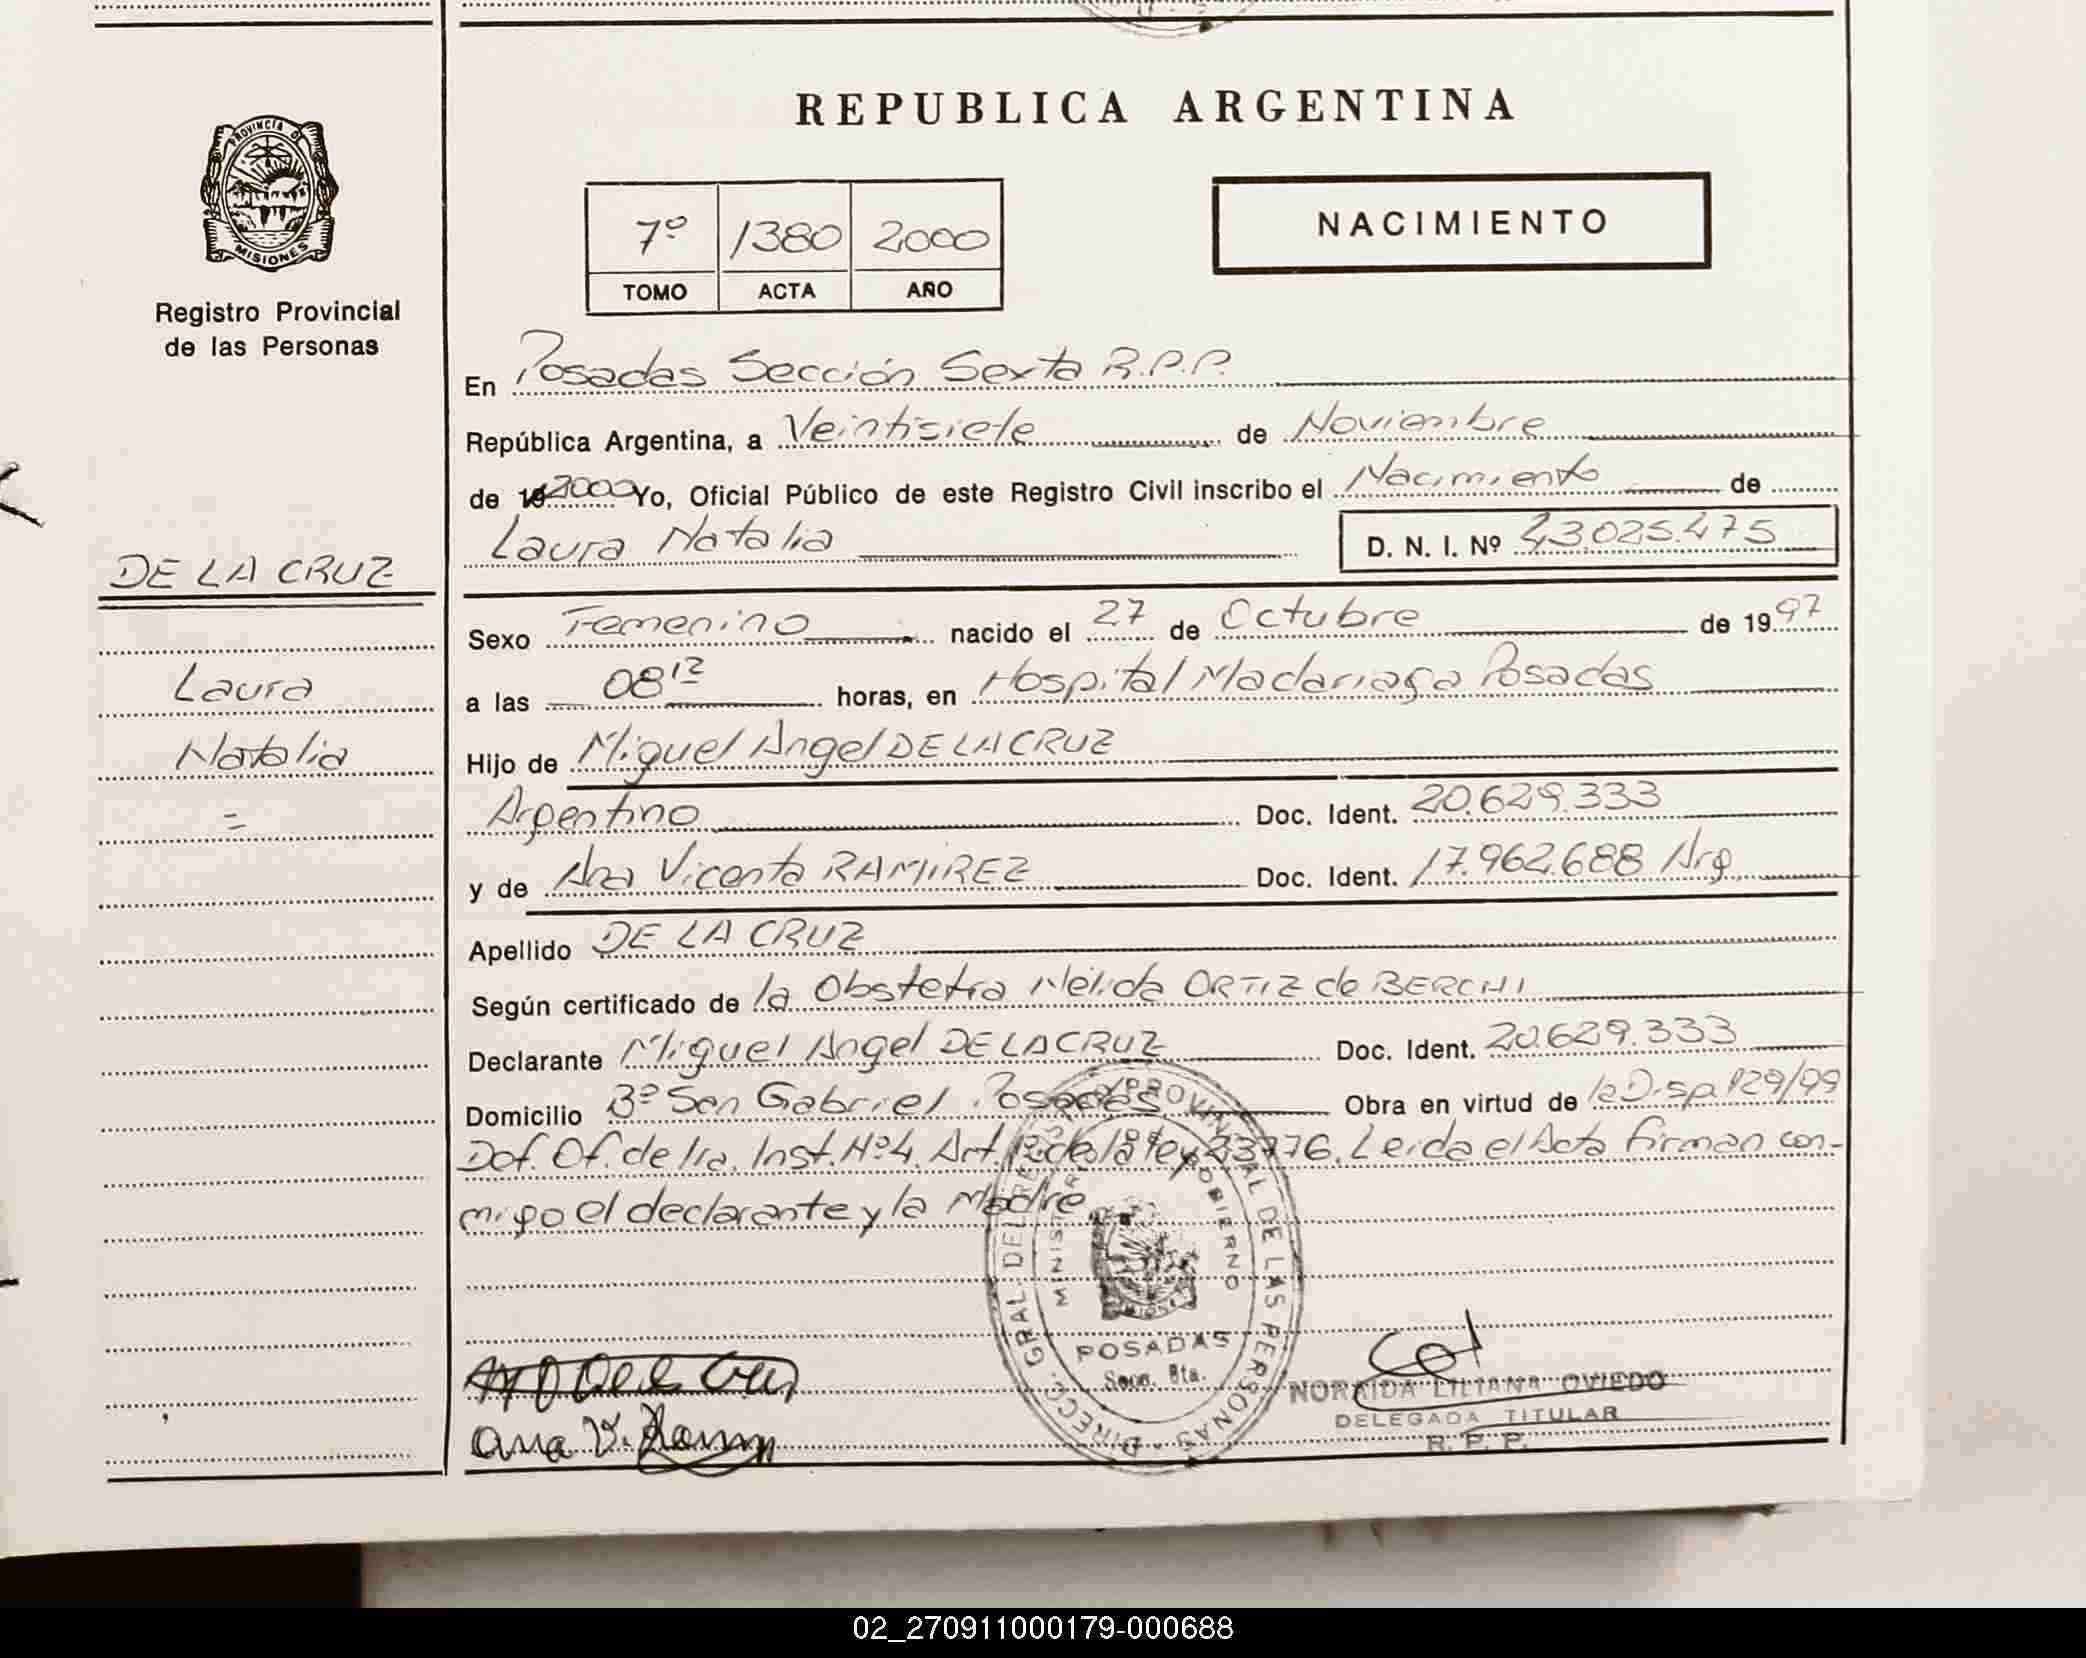 REPUBLICA ARGENTINA
PROVINCIA DE
MISIONES
Registro Provincial
de las Personas
7º 1380 2000
TOMO ACTA AÑO
NACIMIENTO
En Posadas Sección Sexta R.P.P.
República Argentina, a Veintisiete de Noviembre
de 19 2000 Yo, Oficial Público de este Registro Civil inscribo el Nacimiento de
Laura Natalia D. N. I. Nº 43.025.475
DE LA CRUZ
Laura
Natalia
=
Sexo Femenino nacido el 27 de Octubre de 1997
a las 08 12 horas, en Hospital Madariaga Posadas
Hijo de Miguel Angel DE LA CRUZ
Argentino Doc. Ident. 20.629.333
y de Ana Vicenta RAMIREZ Doc. Ident. 17.962.688 Arg.
Apellido DE LA CRUZ
Según certificado de la Obstetra Nélida ORTIZ de BERCHI
Declarante Miguel Angel DE LA CRUZ Doc. Ident. 20.629.333
Domicilio Bº San Gabriel Posadas Obra en virtud de la Disp. 129/99
Def. Of. de 1ra. Inst. Nº 4. Art. de la ley 23776. Leida el Acta firman con-
migo el declarante y la Madre
DIRECC. GRAL. DEL REGISTRO PROVINCIAL DE LAS PERSONAS
MINISTERIO DE GOBIERNO
POSADAS
Secc. 6ta.
Ana V. Ramirez
NORAIDA LILIANA OVIEDO
DELEGADA TITULAR
R. P. P.
02_270911000179-000688